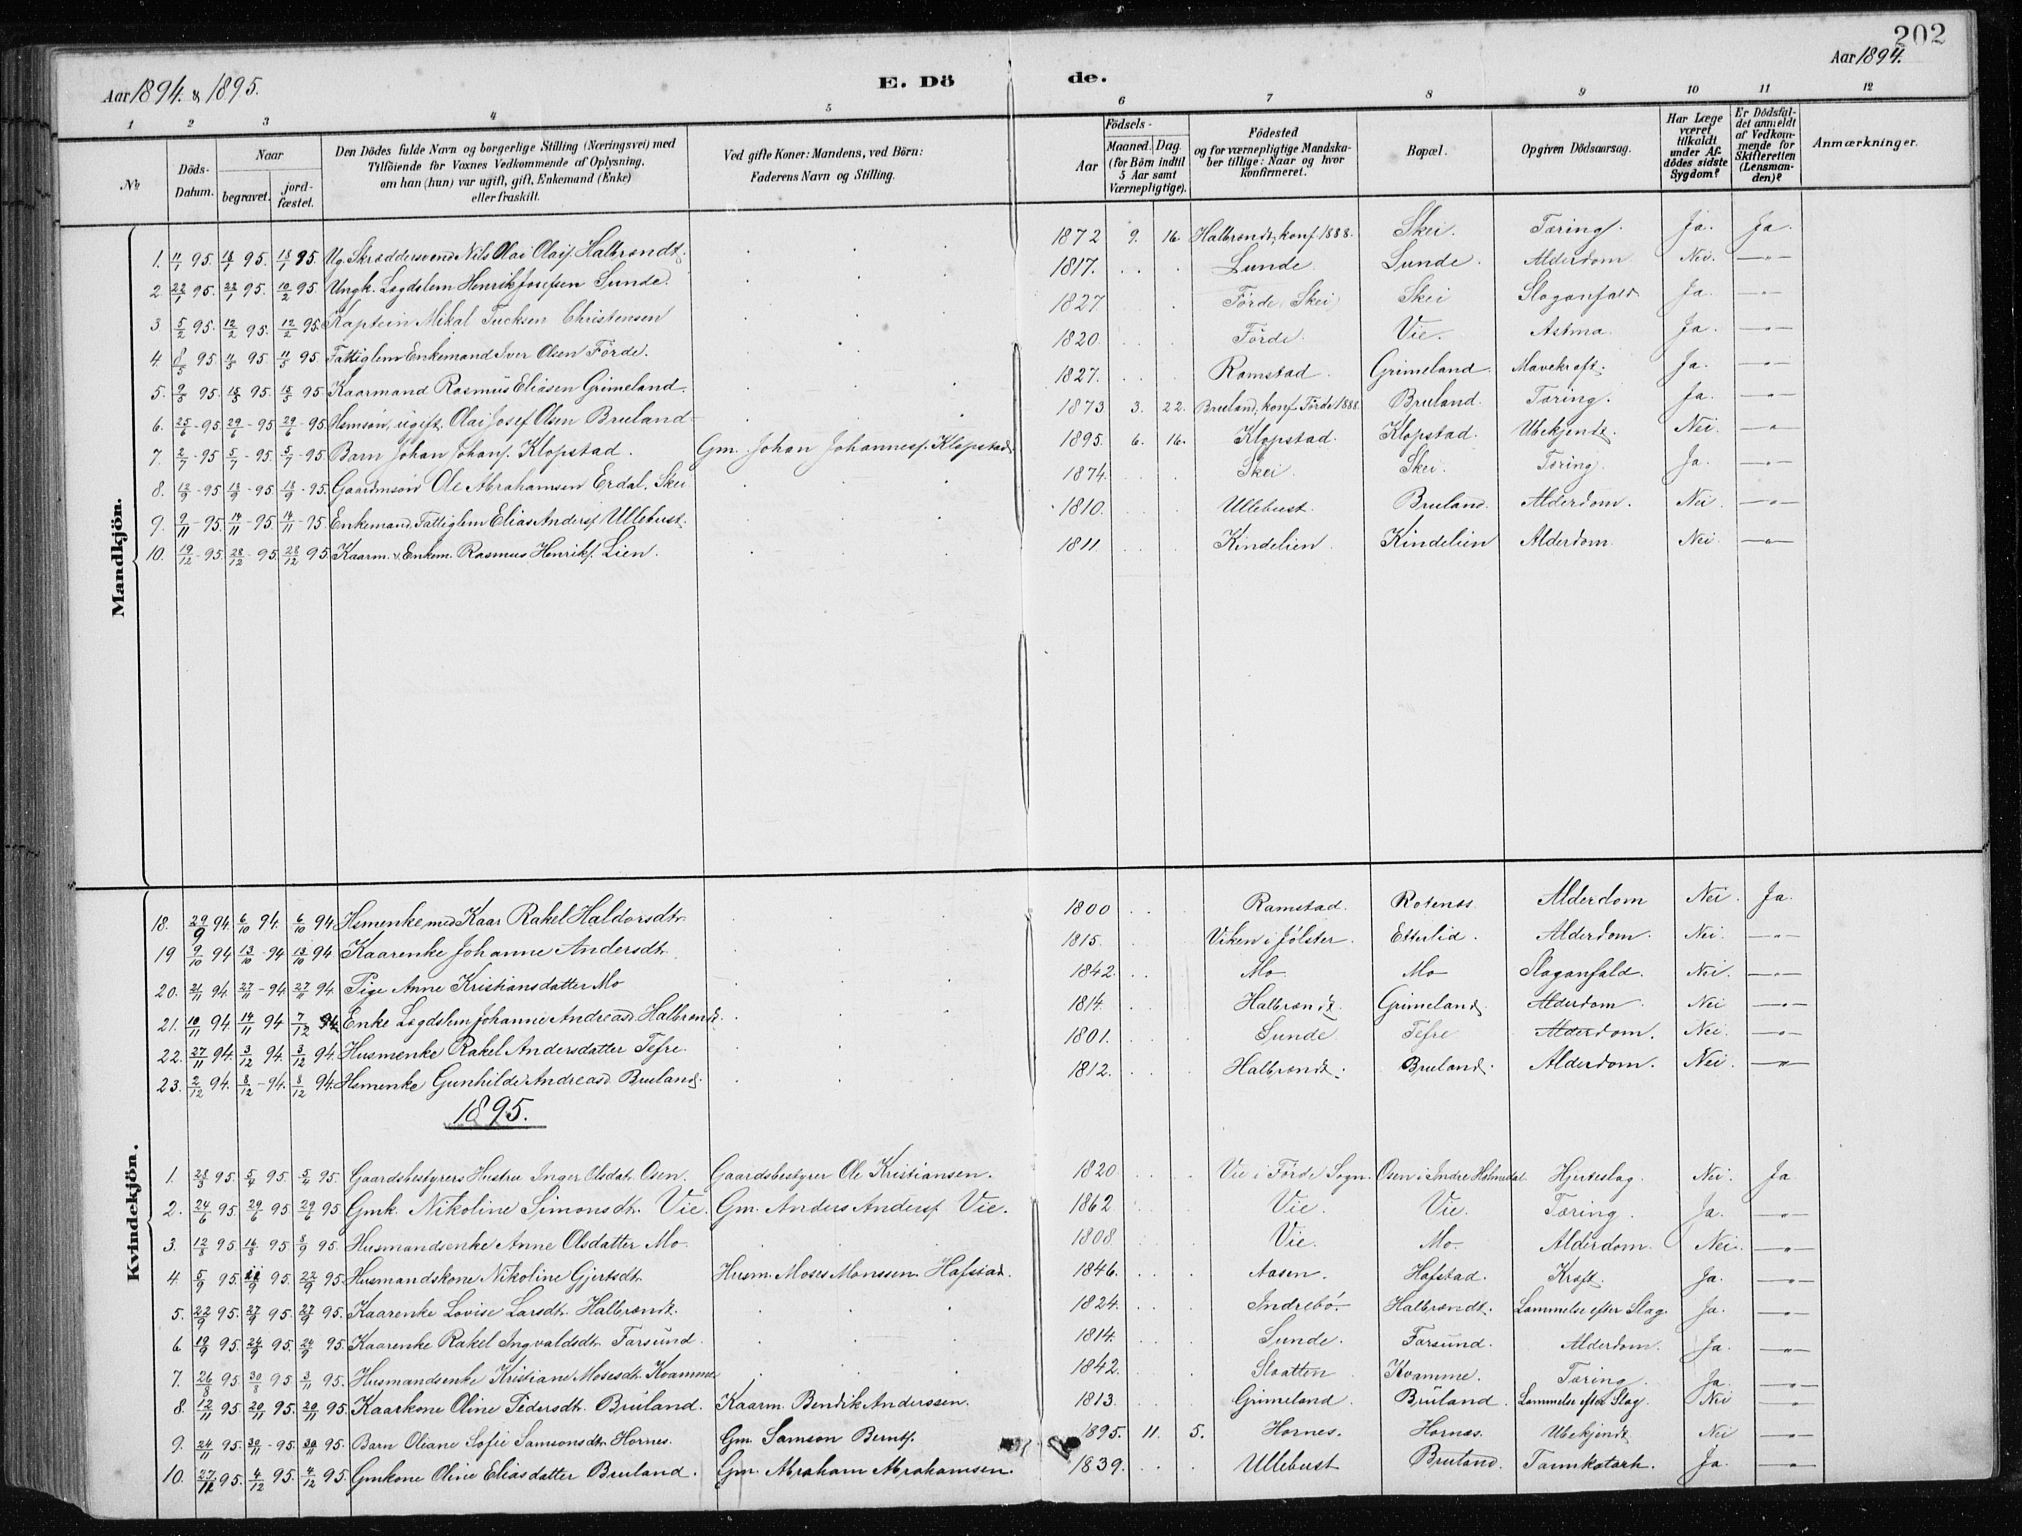 202
Aar 1894. & 1895.
E. Dö
de.
Aar 1894.
1 2 3 4 5 6 7 8 9 10 11 12
No
Döds-Datum.
Naar
begravet.
jordfæstet.
Den Dödes fulde Navn og borgerlige Stilling (Næringsvei) med Tilföiende for Voxnes Vedkommende af Oplysning, om han (hun) var ugift, gift, Enkemand (Enke) eller fraskilt.
Ved gifte Koner: Mandens, ved Börn: Faderens Navn og Stilling.
Födsels-
Aar
Maaned. Dag. (for Börn indtil 5 Aar samt Værnepligtige).
Födested og for værnepligtige Mandskaber tillige: Naar og hvor konfirmeret.
Bopæl.
Opgiven Dödsaarsag.
Har Læge været tilkaldt under Afdödes sidste Sygdom?
Er Dödsfaldet anmeldt af Vedkommende for Skifteretten (Lensmanden)?
Anmærkninger.
Mandkjön.
1. 11/1 95. 18/1 95. 18/1 95. Ug. Skræddersvend Nils Olai Olaij. Halbrendt. 1872 9. 16. Halbrendt, konf. 1888. Skei. Tæring. Ja. Ja.
2 22/1 95. 22/1 95. 10/2 95. Ungk. Lægdslem Henrik Josefsen Sunde. 1817. Sunde Sunde. Alderdom Nei. —"—
3 5/2 95. 12/2 95. 12/2 95. Kaptein Mikal Tucksen Christensen 1827 Förde, Skei Skei Slaganfald Ja. —"—
4. 8/3 95. 11/3 95. 11/3 95. Fattiglem Enkemand Iver Olsen Förde. 1820 Förde. Vie. Astma. Ja. —"—
5. 9/3 95. 15/3 95. 15/3 95. Kaarmand Rasmus Eliasen Grimeland. 1827. Ramstad. Grimeland. Mavekræft. Ja. —"—
6. 25/6 - 95. 29/6 - 95. 29/6 - 95. Hsmsön, ugift, Olai Josef Olsen Bruland 1873 3. 22. Bruland, konf. Förde 1888. Bruland. Tæring. Ja. —"—
7. 2/7 - 95 5/7 - 95. 5/7 - 95. Barn Johan Johans. Klopstad. Gm. Johan Johannesf. Klopstad. 1895. 6. 16. Klopstad. Klopstad. Ubekjendt. Nei. —"—
8. 12/9 - 95 18/9 - 95. 18/9 - 95. Gaardmsön Ole Abrahamsen Erdal, Skei 1874. Skei. Skei. Tæring. Ja. —"—
9. 9/11 - 95. 14/11 - 95. 14/11 - 95. Enkemand, Fattiglem Elias Andersf. Ullebust. 1810. Ullebust. Bruland. Alderdom. Nei. —"—
10. 19/12 - 95. 28/12 - 95. 28/12 95. Kaarm. & Enkem. Rasmus Henriksf. Lien. 1811. Kindelien. Kindelien Alderdom. Nei. —"—
Kvindekjön.
18. 29/9 94. 6/10 94. 6/10 94 Hsmenke med Kaar Rakel Haldorsdtr. 1800 Ramstad. Rotenes. Alderdom Nei. Ja.
19 9/10 94 13/10 - 94 13/10 94 Kaarenke Johanne Andersdt. 1815. Viken i Jölster. Etterlid. Alderdom. Nei. —"—
20. 21/11 94. 27/11 - 94 27/11 94. Pige Anne Kristiansdatter Mo 1842. Mo. Mo Slaganfald. Nei. —"—
21. 10/11 94 14/11 94 7/12 94. Enke Lægdslem Johanne Andreasd. Halbrendt. 1814. Halbrendt. Grimeland. Alderdom. Nei —"—
22. 27/11 94. 3/12 94. 3/12 94. Husmenke Rakel Andersdatter Tefre. 1801. Sunde Tefre Alderdom. Nei. —"—
23. 2/12 94. 8/12 - 94. 8/12 94. Hsmenke Gunhilde Andreasd. Bruland. 1812. Halbrendt. Bruland. Alderdom. Nei. —"—
1895.
1. 28/3 95. 5/4 95. 5/4 95. Gaardsbestyrers Hustru Inger Olsdat. Osen. Gaardsbestyrer Ole Kristiansen. 1820 Vie i Förde Sogn. Osen i Indre Holmedal Hjerteslag. Nei. Ja
2. 24/6 95. 29/6 95 29/6 95 Gmk. Nikoline Simonsdt. Vie. Gm. Anders Andersf. Vie. 1862 Vie. Vie. Tæring. Ja. —"—
3. 12/8 95. 16/8 95 8/9 95. Husmandsenke Anne Olsdatter Mo. 1808 Vie. Mo. Alderdom. Nei. —"—
4. 5/9 95. 11/9 95. 22/9 95. Husmandskone Nikoline Gjertsdt. Husm. Moses Monssen Hafstad. 1846. Aasen. Hafstad. Kræft. Ja. —"—
5. 22/9 95. 27/9 95. 27/9 95. Kaarenke Lovise Larsdt. Halbrendt. 1824. Indrebö. Halbrendt. Lammelse efter Slag. Ja. —"—
6 19/9 95. 24/9 95. 24/9 95. Kaarenke Rakel Ingvaldsdt. Farsund. 1814. Sunde. Farsund. Alderdom. Ja. —"—
7. 26/8 95. 30/8 95 3/11 95. Husmandsenke Kristiane Mosesdt. Kvamme 1842. Slaatten Kvamme. Tæring. Ja. —"—
8. 12/11 95. 20/11 95. 20/11 95. Kaarkone Oline Pedersdt. Bruland. Kaarm. Bendik Anderssen. 1813. Grimeland. Bruland. Lammelse efter Slag. Nei —"—
9. 24/11 95. 30/11 - 95 30/11 95. Barn Oliane Sofie Samsonsdt. Hornes. Gm. Samson Berntf. 1895. 11. 5. Hornes. Hornes. Ubekjendt Nei —"—
10. 27/11 95. 4/12 95. 4/12 95. Gmkone Oline Eliasdatter Bruland. Gm. Abraham Abrahamsen. 1839. Ullebust Bruland. Tarmkatarh. Ja. —"—